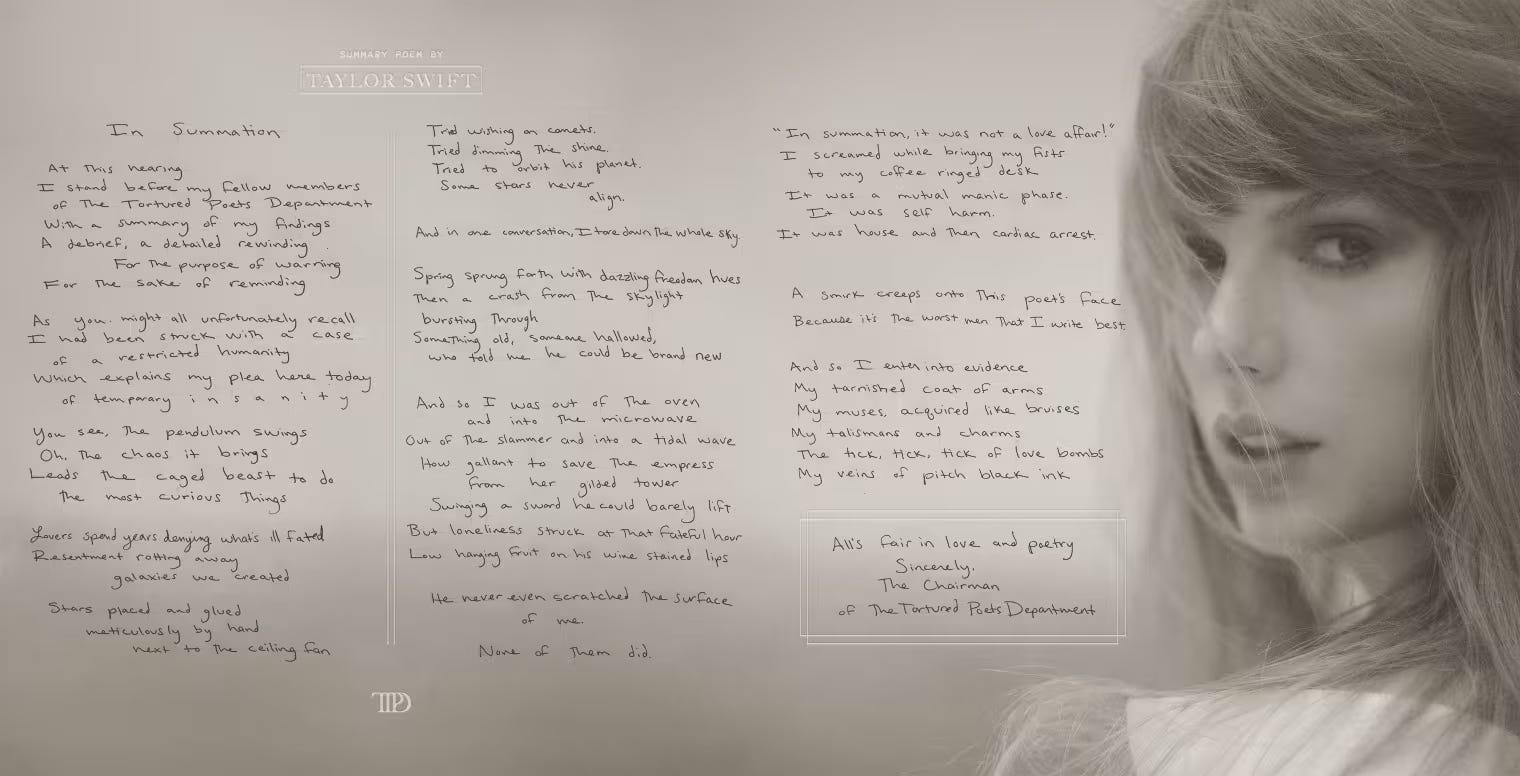 SUMMARY POEM BY
TAYLOR SWIFT
In Summation
At this hearing
I stand before my fellow members
of The Tortured Poets Department
With a summary of my findings
A debrief, a detailed rewinding
For the purpose of warning
For the sake of reminding
As you might all unfortunately recall
I had been struck with a case
of a restricted humanity
Which explains my plea here today
of temporary i n s a n i t y
You see, the pendulum swings
Oh, the chaos it brings
Leads the caged beast to do
the most curious things
Lovers spend years denying what's ill fated
Resentment rotting away
galaxies we created
Stars placed and glued
meticulously by hand
next to the ceiling fan
Tried wishing on comets.
Tried dimming the shine.
Tried to orbit his planet.
Some stars never
align.
And in one conversation, I tore down the whole sky
Spring sprung forth with dazzling freedom hues
Then a crash from the skylight
bursting through
Something old, someone hallowed,
who told me he could be brand new
And so I was out of the oven
and into the microwave
Out of the slammer and into a tidal wave
How gallant to save the empress
from her gilded tower
Swinging a sword he could barely lift
But loneliness struck at that fateful hour
Low hanging fruit on his wine stained lips
He never even scratched the surface
of me.
None of them did.
"In summation, it was not a love affair!"
I screamed while bringing my fists
to my coffee ringed desk
It was a mutual manic phase.
It was self harm.
It was house and then cardiac arrest.
A smirk creeps onto this poet's face
Because it's the worst men that I write best.
And so I enter into evidence
My tarnished coat of arms
My muses, acquired like bruises
My talismans and charms
The tick, tick, tick of love bombs
My veins of pitch black ink
All's fair in love and poetry
Sincerely,
The Chairman
of The Tortured Poets Department
TTPD